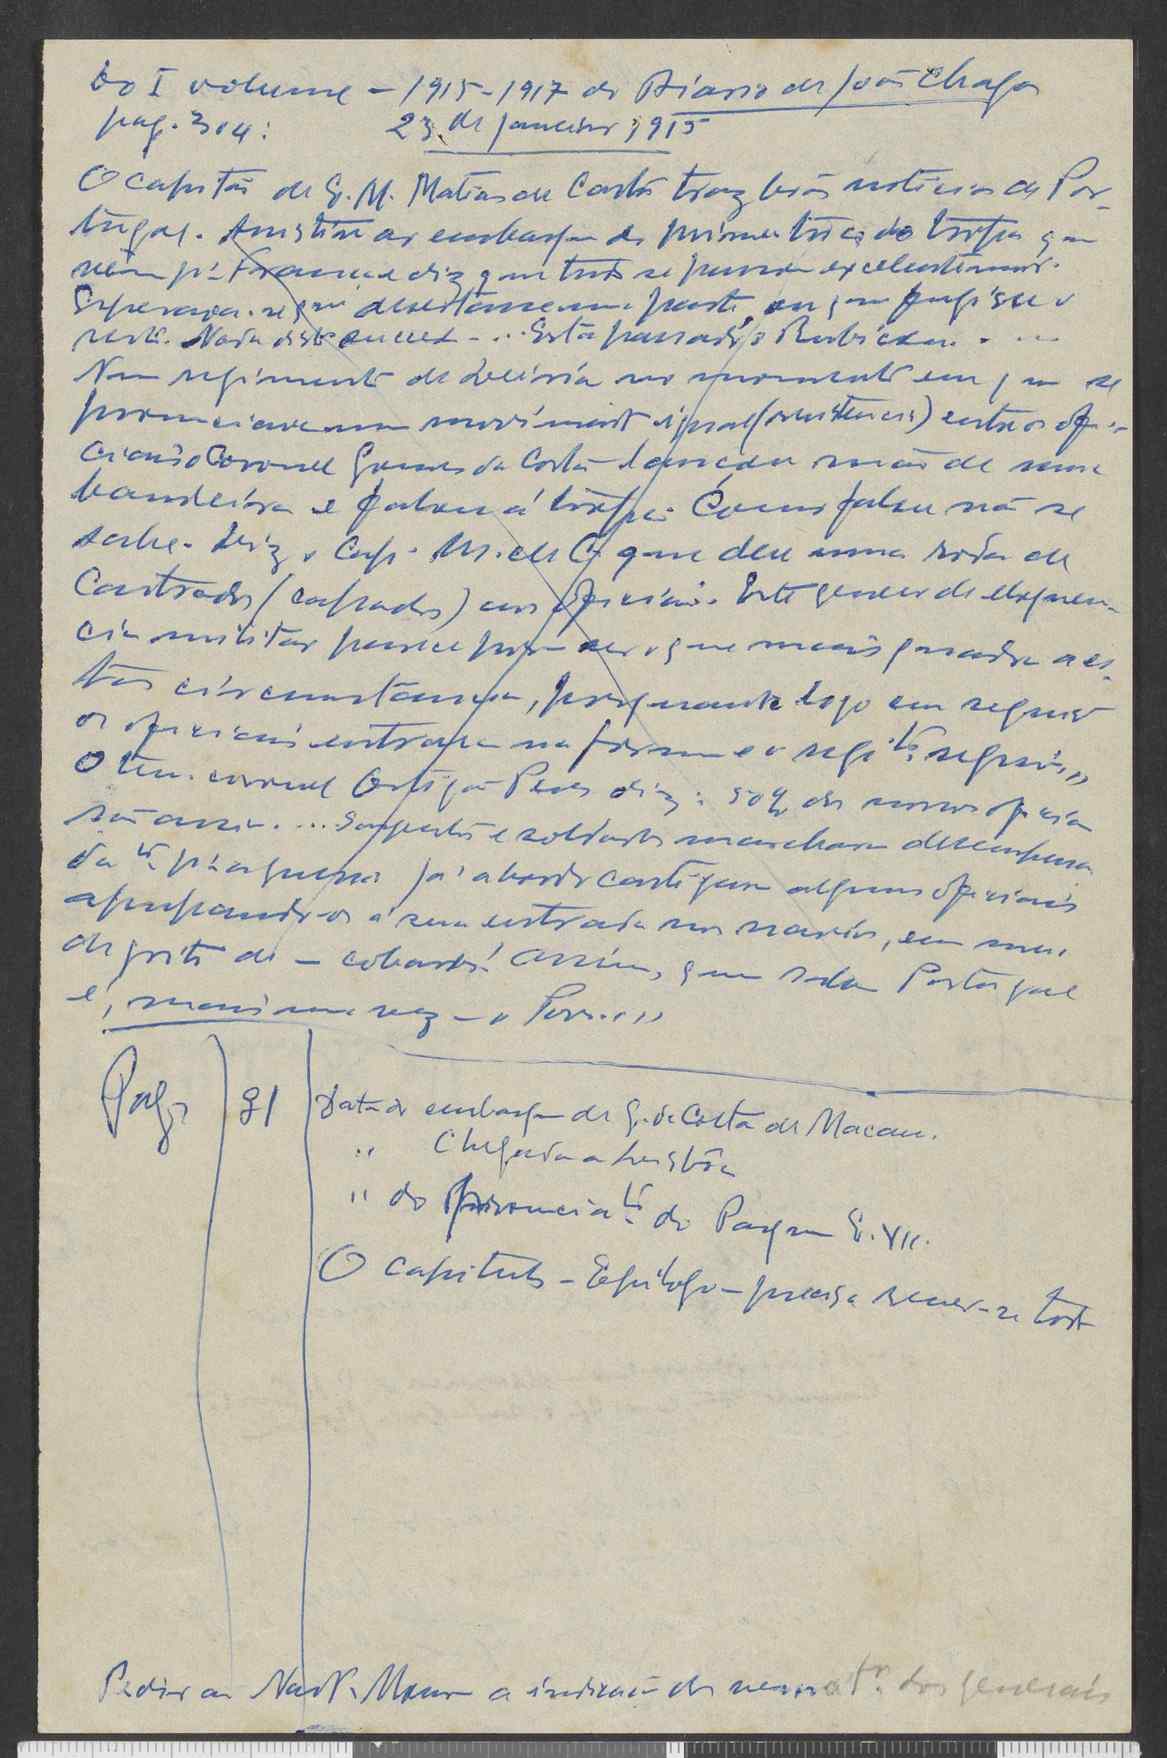 Do I volume - 1915-1917 do Diario de João Chagas
pag. 304: 23 de janeiro 1915
O capitão de E. M. Matias de Castro traz boas noticias de Por-
tugal. Assistiu ao embarque da primeira de tropas que
vem pª França e diz que tudo se passou excelentemente.
Esperava-se que desertasse uma parte, ou que fugisse o
resto. Nada disto sucedeu - ... Está passado o Rubicon. . ...
Num regimento de Leiria no momento em que se
pronunciava um movimento igual (resistencia) entre os ofi-
ciais o Coronel Gomes da Costa lançou mão de uma
bandeira e falou á tropa. Como falou não se
sabe. Diz o Cap. M. de C. que deu uma roda de
Castrados (capados) aos oficiais. Este genero de eloquen-
cia militar parece ser o que mais quadra a es-
tas circumstancias, porquanto logo em seguida
os oficiais entraram na forma e o regitº seguiu,,
O ten. coronel Ortigão Peres diz: 50% dos nossos oficiais
são assim. ... Sargentos e soldados marcham
pª a guerra já a bordo castigam alguns oficiais
apupando-os á sua entrada nos navios, em
de gritos de - cobardes! Assim, quem salva Portugal
é, mais uma vez - o Povo...,,
Pag. 91 Data do embarque de G. da Costa de Macau.
,, Chegada a Lisbôa
,, do pronunciatº do Parque E. VII.
O capitulo - Epílogo - precisa rever-se todo
Pedir ao Moura a indicação da dos generais